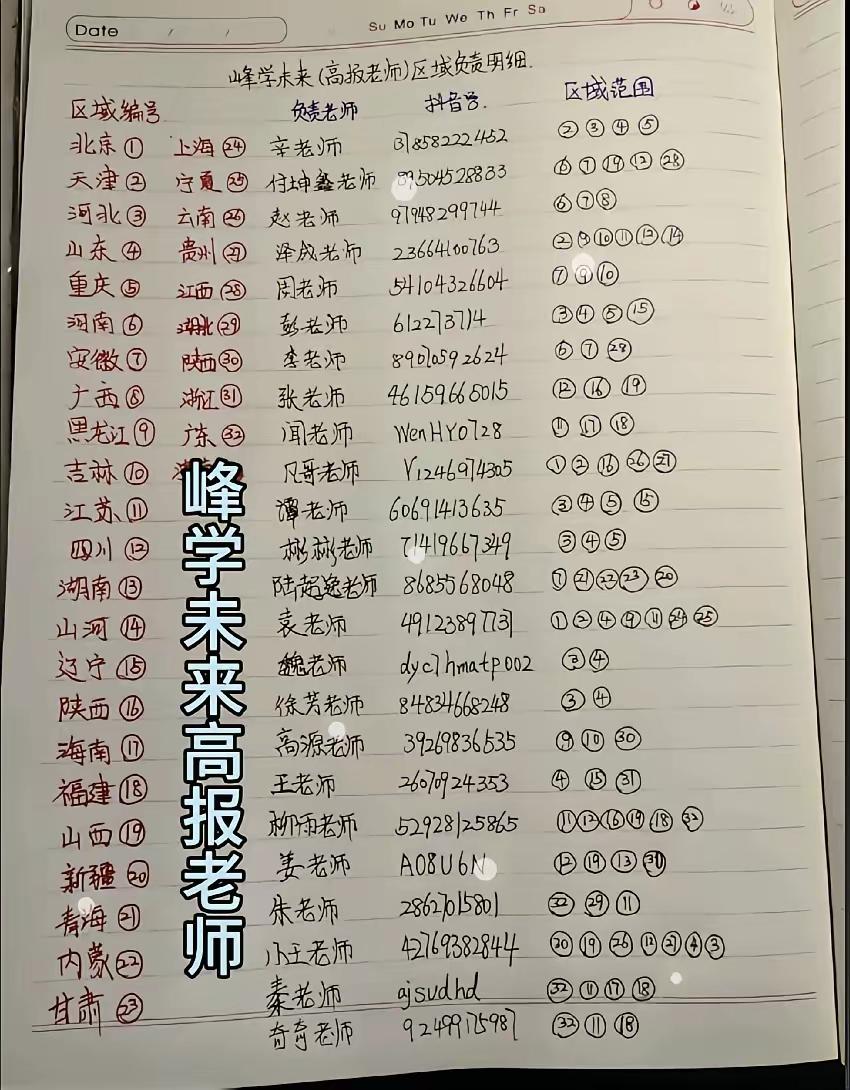 Date / / Su Mo Tu We Th Fr Sa
峰学未来(高报老师)区域负责明细.
区域编号 负责老师 抖音号. 区域范围
北京① 上海㉔ 辛老师 37858222452 ②③④⑤
天津② 宁夏㉕ 付坤鑫老师 89504528833 ⑥⑦⑲⑫㉘
河北③ 云南㉖ 赵老师 97948299744 ⑥⑦⑧
山东④ 贵州㉗ 泽成老师 23664100763 ②⑨⑩⑪⑬⑭
重庆⑤ 江西㉘ 周老师 54104326604 ⑦⑨⑩
河南⑥ 湖北㉙ 彭老师 612273714 ③④⑤⑮
安徽⑦ 陕西㉚ 李老师 89070592624 ⑥⑦㉘
广西⑧ 浙江㉛ 张老师 46159665015 ⑫⑯⑲
黑龙江⑨ 广东㉜ 闻老师 WenHY0728 ⑪⑰⑱
吉林⑩ 凡哥老师 Y1246974305 ①②⑯㉖㉗
江苏⑪ 谭老师 60691413635 ③④⑤⑮
四川⑫ 彬彬老师 71419667349 ③④⑤
湖南⑬ 陆超逸老师 8685568048 ⑦㉑㉒㉓⑳
山河⑭ 袁老师 49123897731 ①②④⑨⑪㉔㉕
辽宁⑮ 魏老师 dyc7hmatp002 ③④
陕西⑯ 徐芳老师 84834668248 ③④
海南⑰ 高源老师 39269836535 ⑨⑩㉚
福建⑱ 王老师 26070924353 ④⑮㉛
山西⑲ 柳雨老师 52928125865 ⑪⑫⑯⑲⑱㉜
新疆⑳ 姜老师 A08U6N ⑫⑲⑬㉛
青海㉑ 朱老师 28627015801 ㉜㉙⑪
内蒙㉒ 小王老师 42769382844 ⑳⑲㉖⑫㉗④③
甘肃㉓ 秦老师 ajsudhd ㉜⑪⑰⑱
奇奇老师 92499175987 ㉜⑪⑱
峰学未来高报老师